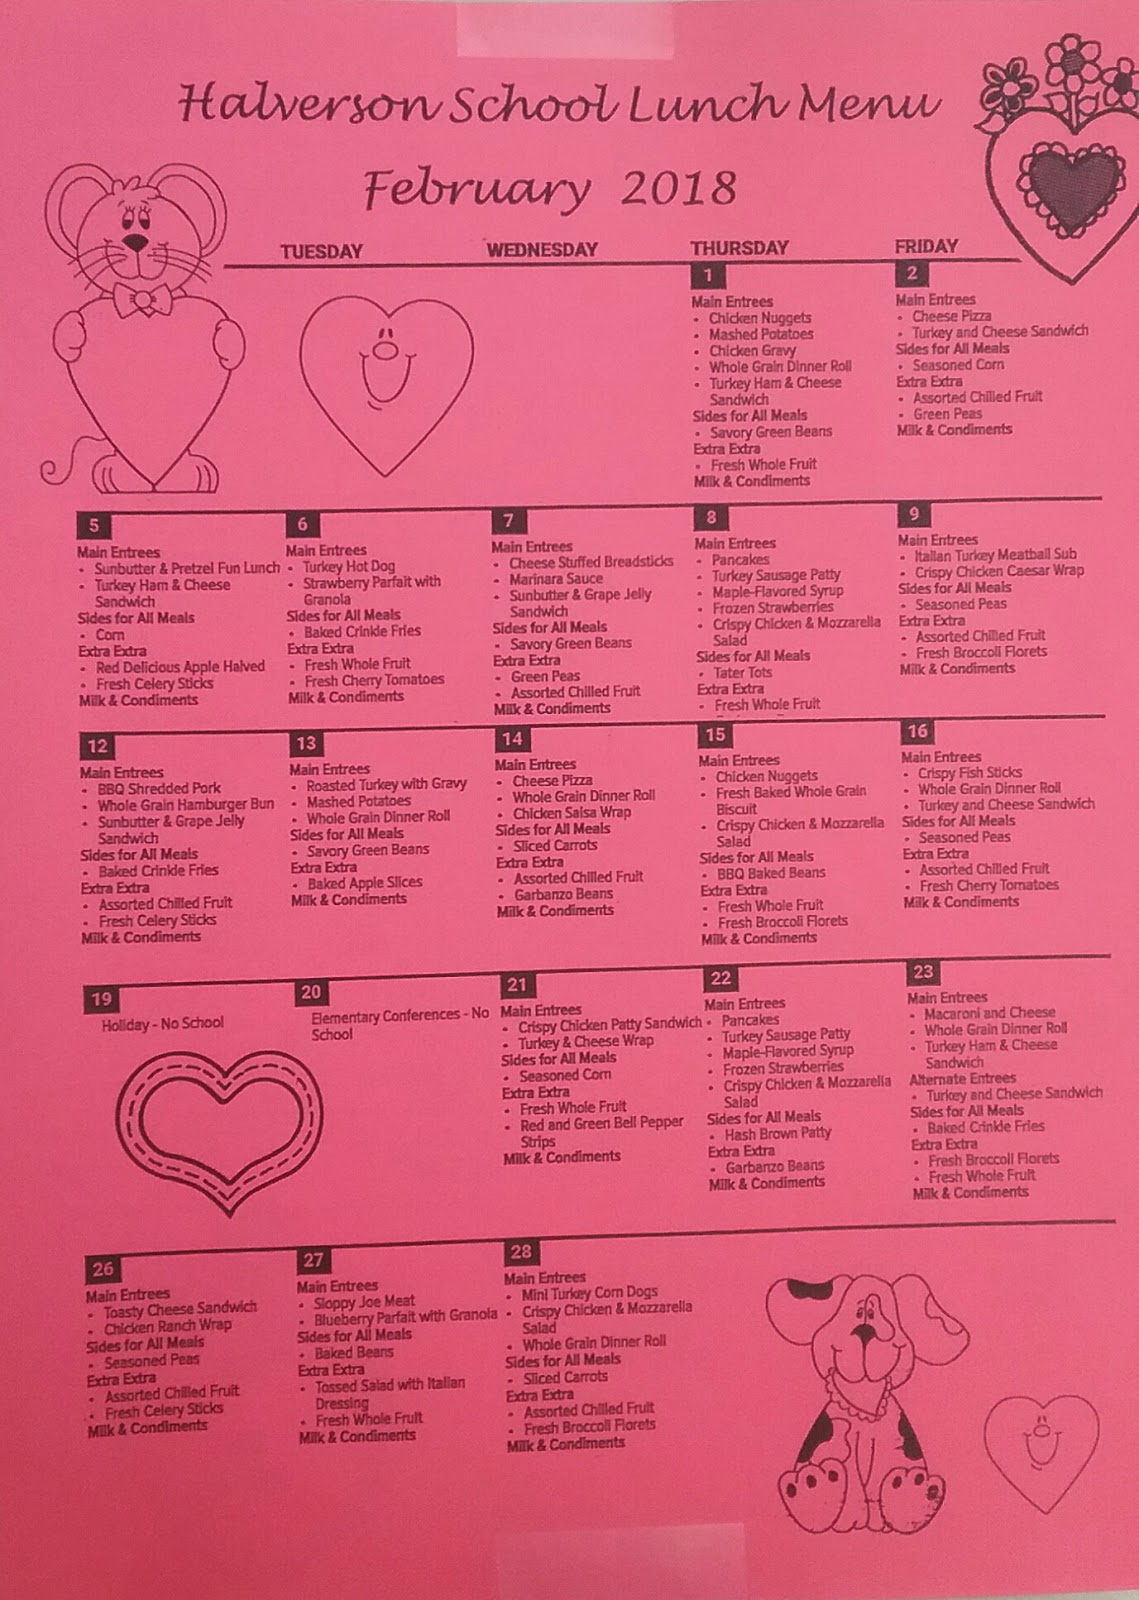 Halverson School Lunch Menu
February 2018
TUESDAY
WEDNESDAY
THURSDAY
FRIDAY
1
Main Entrees
• Chicken Nuggets
• Mashed Potatoes
• Chicken Gravy
• Whole Grain Dinner Roll
• Turkey Ham & Cheese
Sandwich
Sides for All Meals
• Savory Green Beans
Extra Extra
• Fresh Whole Fruit
Milk & Condiments
2
Main Entrees
• Cheese Pizza
• Turkey and Cheese Sandwich
Sides for All Meals
• Seasoned Corn
Extra Extra
• Assorted Chilled Fruit
• Green Peas
Milk & Condiments
5
Main Entrees
• Sunbutter & Pretzel Fun Lunch
• Turkey Ham & Cheese
Sandwich
Sides for All Meals
• Corn
Extra Extra
• Red Delicious Apple Halved
• Fresh Celery Sticks
Milk & Condiments
6
Main Entrees
• Turkey Hot Dog
• Strawberry Parfait with
Granola
Sides for All Meals
• Baked Crinkle Fries
Extra Extra
• Fresh Whole Fruit
• Fresh Cherry Tomatoes
Milk & Condiments
7
Main Entrees
• Cheese Stuffed Breadsticks
• Marinara Sauce
• Sunbutter & Grape Jelly
Sandwich
Sides for All Meals
• Savory Green Beans
Extra Extra
• Green Peas
• Assorted Chilled Fruit
Milk & Condiments
8
Main Entrees
• Pancakes
• Turkey Sausage Patty
• Maple-Flavored Syrup
• Frozen Strawberries
• Crispy Chicken & Mozzarella
Salad
Sides for All Meals
• Tater Tots
Extra Extra
• Fresh Whole Fruit
9
Main Entrees
• Italian Turkey Meatball Sub
• Crispy Chicken Caesar Wrap
Sides for All Meals
• Seasoned Peas
Extra Extra
• Assorted Chilled Fruit
• Fresh Broccoli Florets
Milk & Condiments
12
Main Entrees
• BBQ Shredded Pork
• Whole Grain Hamburger Bun
• Sunbutter & Grape Jelly
Sandwich
Sides for All Meals
• Baked Crinkle Fries
Extra Extra
• Assorted Chilled Fruit
• Fresh Celery Sticks
Milk & Condiments
13
Main Entrees
• Roasted Turkey with Gravy
• Mashed Potatoes
• Whole Grain Dinner Roll
Sides for All Meals
• Savory Green Beans
Extra Extra
• Baked Apple Slices
Milk & Condiments
14
Main Entrees
• Cheese Pizza
• Whole Grain Dinner Roll
• Chicken Salsa Wrap
Sides for All Meals
• Sliced Carrots
Extra Extra
• Assorted Chilled Fruit
• Garbanzo Beans
Milk & Condiments
15
Main Entrees
• Chicken Nuggets
• Fresh Baked Whole Grain
Biscuit
• Crispy Chicken & Mozzarella
Salad
Sides for All Meals
• BBQ Baked Beans
Extra Extra
• Fresh Whole Fruit
• Fresh Broccoli Florets
Milk & Condiments
16
Main Entrees
• Crispy Fish Sticks
• Whole Grain Dinner Roll
• Turkey and Cheese Sandwich
Sides for All Meals
• Seasoned Peas
Extra Extra
• Assorted Chilled Fruit
• Fresh Cherry Tomatoes
Milk & Condiments
19
Holiday - No School
20
Elementary Conferences - No
School
21
Main Entrees
• Crispy Chicken Patty Sandwich
• Turkey & Cheese Wrap
Sides for All Meals
• Seasoned Corn
Extra Extra
• Fresh Whole Fruit
• Red and Green Bell Pepper
Strips
Milk & Condiments
22
Main Entrees
• Pancakes
• Turkey Sausage Patty
• Maple-Flavored Syrup
• Frozen Strawberries
• Crispy Chicken & Mozzarella
Salad
Sides for All Meals
• Hash Brown Patty
Extra Extra
• Garbanzo Beans
Milk & Condiments
23
Main Entrees
• Macaroni and Cheese
• Whole Grain Dinner Roll
• Turkey Ham & Cheese
Sandwich
Alternate Entrees
• Turkey and Cheese Sandwich
Sides for All Meals
• Baked Crinkle Fries
Extra Extra
• Fresh Broccoli Florets
• Fresh Whole Fruit
Milk & Condiments
26
Main Entrees
• Toasty Cheese Sandwich
• Chicken Ranch Wrap
Sides for All Meals
• Seasoned Peas
Extra Extra
• Assorted Chilled Fruit
• Fresh Celery Sticks
Milk & Condiments
27
Main Entrees
• Sloppy Joe Meat
• Blueberry Parfait with Granola
Sides for All Meals
• Baked Beans
Extra Extra
• Tossed Salad with Italian
Dressing
• Fresh Whole Fruit
Milk & Condiments
28
Main Entrees
• Mini Turkey Corn Dogs
• Crispy Chicken & Mozzarella
Salad
• Whole Grain Dinner Roll
Sides for All Meals
• Sliced Carrots
Extra Extra
• Assorted Chilled Fruit
• Fresh Broccoli Florets
Milk & Condiments